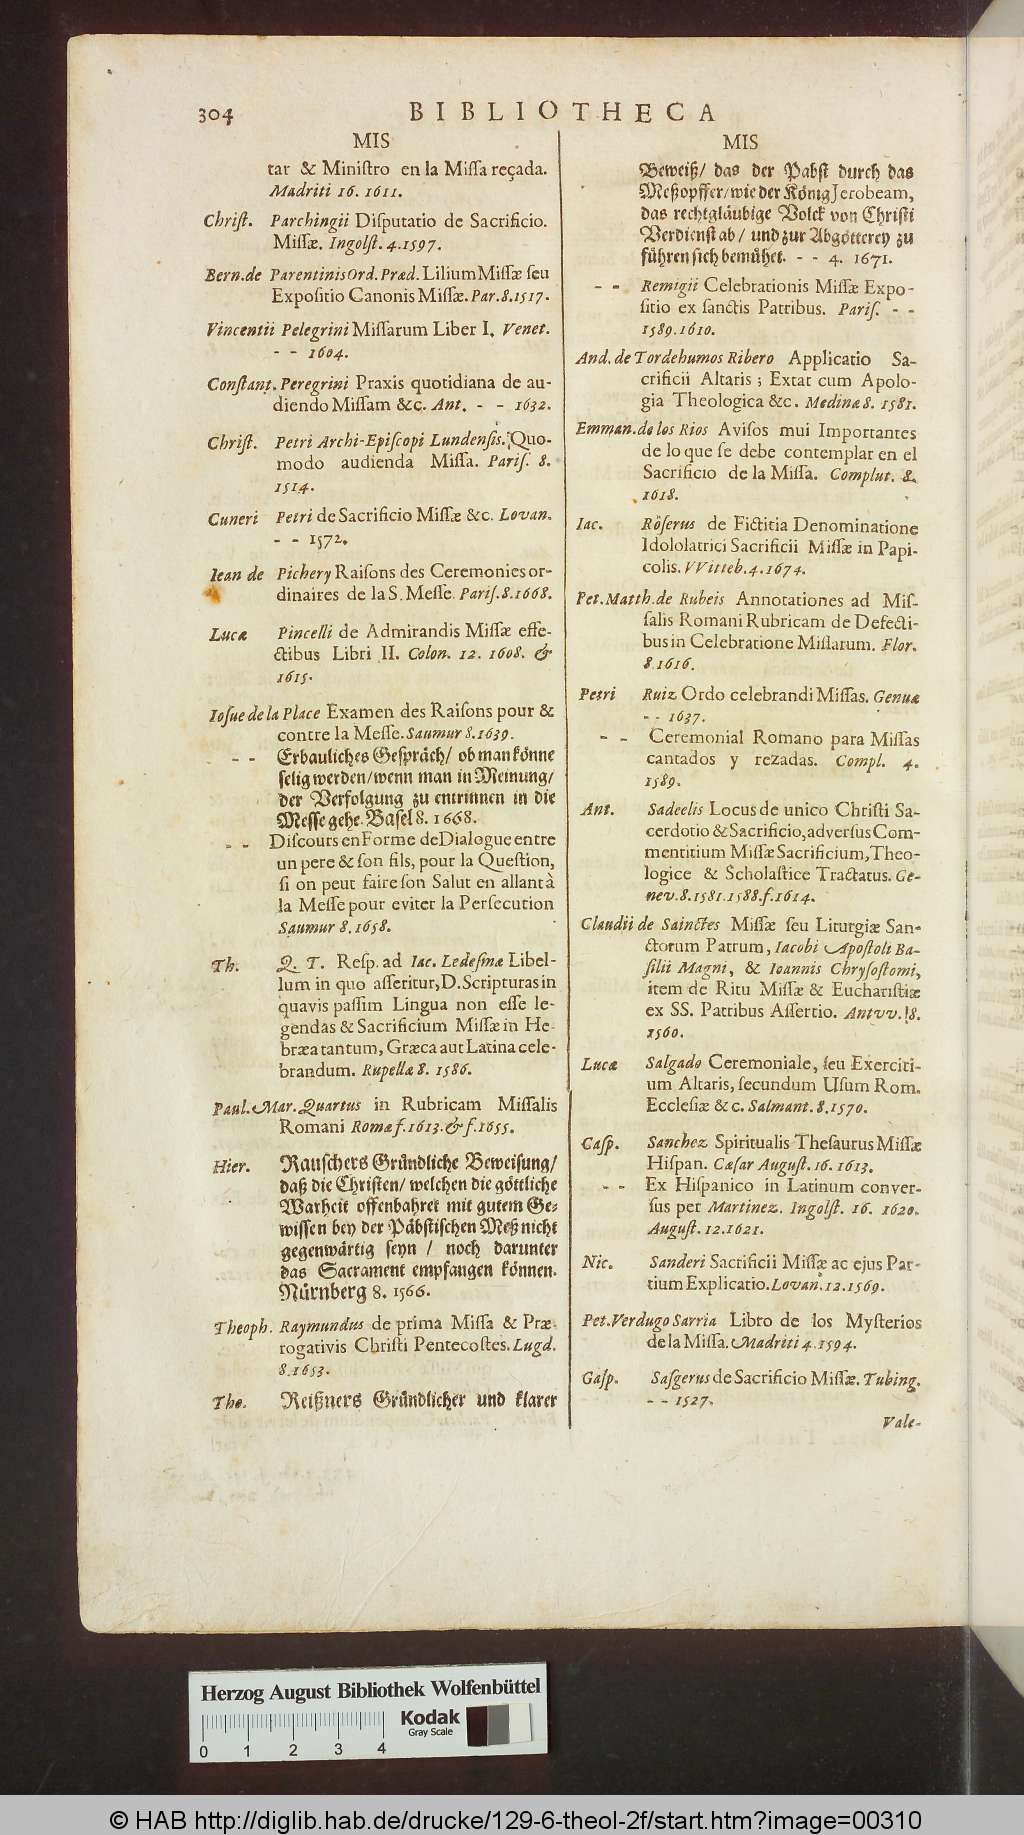 304 BIBLIOTHECA
MIS
tar & Miniſtro en la Miſſa reçada.
Madriti 16. 1611.
Chriſt. Parchingii Diſputatio de Sacrificio.
Miſſæ. Ingolſt. 4. 1597.
Bern. de Parentinis Ord. Præd. Lilium Miſſæ ſeu
Expoſitio Canonis Miſſæ. Par. 8. 1517.
Vincentii Pelegrini Miſſarum Liber I. Venet.
- - 1604.
Conſtant. Peregrini Praxis quotidiana de au-
diendo Miſſam &c. Ant. - - 1632.
Chriſt. Petri Archi-Epiſcopi Lundenſis. Quo-
modo audienda Miſſa. Pariſ. 8.
1514.
Cuneri Petri de Sacrificio Miſſæ &c. Lovan.
- - 1572.
Iean de Pichery Raiſons des Ceremonies or-
dinaires de la S. Meſſe. Pariſ. 8. 1668.
Lucæ Pincelli de Admirandis Miſſæ effe-
ctibus Libri II. Colon. 12. 1608. &
1615.
Ioſue de la Place Examen des Raiſons pour &
contre la Meſſe. Saumur 8. 1639.
- - Erbauliches Geſpräch/ ob man könne
ſelig werden/ wenn man in Meinung/
der Verfolgung zu entrinnen in die
Meſſe gehe. Baſel 8. 1668.
- - Diſcours en Forme de Dialogue entre
un pere & ſon fils, pour la Queſtion,
ſi on peut faire ſon Salut en allant à
la Meſſe pour eviter la Perſecution
Saumur 8. 1658.
Th. Q. T. Reſp. ad Iac. Ledeſmæ Libel-
lum in quo aſſeritur, D. Scripturas in
quavis paſſim Lingua non eſſe le-
gendas & Sacrificium Miſſæ in He-
bræa tantum, Græca aut Latina cele-
brandum. Rupellæ 8. 1586.
Paul. Mar. Quartus in Rubricam Miſſalis
Romani Romæ f. 1613. & f. 1655.
Hier. Rauſchers Gründliche Beweiſung/
daß die Chriſten/ welchen die göttliche
Warheit offenbahret mit gutem Ge-
wiſſen bey der Päbſtiſchen Meß nicht
gegenwärtig ſeyn / noch darunter
das Sacrament empfangen können.
Nürnberg 8. 1566.
Theoph. Raymundus de prima Miſſa & Præ-
rogativis Chriſti Pentecoſtes. Lugd.
8. 1653.
Tho. Reißners Gründlicher und klarer
MIS
Beweiß/ das der Pabſt durch das
Meßopffer/ wie der König Jerobeam,
das rechtgläubige Volck von Chriſti
Verdienſt ab/ und zur Abgötterey zu
führen ſich bemühet. - - 4. 1671.
- - Remigii Celebrationis Miſſæ Expo-
ſitio ex ſanctis Patribus. Pariſ. - -
1589. 1610.
And. de Tordehumos Ribero Applicatio Sa-
crificii Altaris; Extat cum Apolo-
gia Theologica &c. Medinæ 8. 1581.
Emman. de los Rios Aviſos mui Importantes
de lo que ſe debe contemplar en el
Sacrificio de la Miſſa. Complut. 8.
1618.
Iac. Röſerus de Fictitia Denominatione
Idololatrici Sacrificii Miſſæ in Papi-
colis. VVitteb. 4. 1674.
Pet. Matth. de Rubeis Annotationes ad Miſ-
ſalis Romani Rubricam de Defecti-
bus in Celebratione Miſſarum. Flor.
8. 1616.
Petri Ruiz Ordo celebrandi Miſſas. Genuæ
- - 1637.
- - Ceremonial Romano para Miſſas
cantados y rezadas. Compl. 4.
1589.
Ant. Sadeelis Locus de unico Chriſti Sa-
cerdotio & Sacrificio, adverſus Com-
mentitium Miſſæ Sacrificium, Theo-
logice & Scholaſtice Tractatus. Ge-
nev. 8. 1581. 1588. f. 1614.
Claudii de Sainctes Miſſæ ſeu Liturgiæ San-
ctorum Patrum, Iacobi Apoſtoli Ba-
ſilii Magni, & Ioannis Chryſoſtomi,
item de Ritu Miſſæ & Euchariſtiæ
ex SS. Patribus Aſſertio. Antvv. 8.
1560.
Lucæ Salgado Ceremoniale, ſeu Exerciti-
um Altaris, ſecundum Uſum Rom.
Eccleſiæ &c. Salmant. 8. 1570.
Caſp. Sanchez Spiritualis Theſaurus Miſſæ
Hiſpan. Cæſar Auguſt. 16. 1613.
- - Ex Hiſpanico in Latinum conver-
ſus per Martinez. Ingolſt. 16. 1620.
Auguſt. 12. 1621.
Nic. Sanderi Sacrificii Miſſæ ac ejus Par-
tium Explicatio. Lovan. 12. 1569.
Pet. Verdugo Sarria Libro de los Myſterios
de la Miſſa. Madriti 4. 1594.
Gaſp. Saſgerus de Sacrificio Miſſæ. Tubing.
- - 1527.
Vale-
Herzog August Bibliothek Wolfenbüttel
Kodak
Gray Scale
0 1 2 3 4
© HAB http://diglib.hab.de/drucke/129-6-theol-2f/start.htm?image=00310